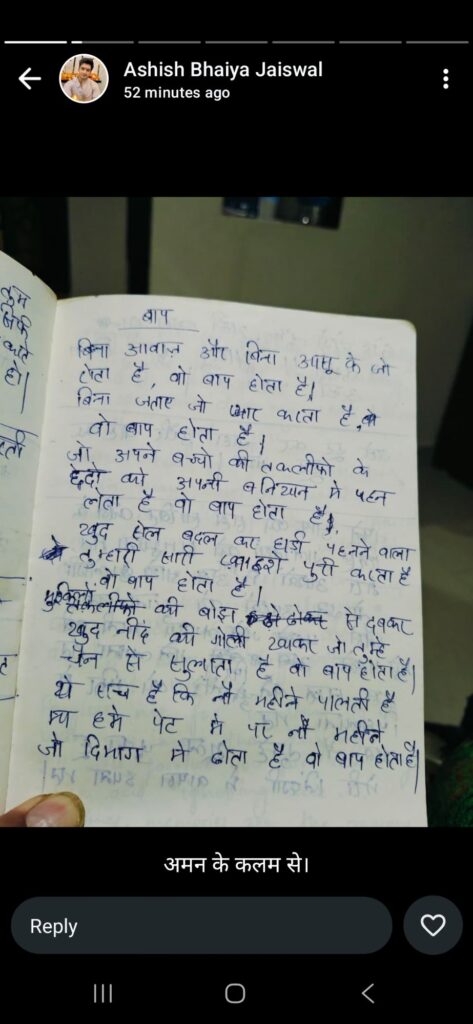 Ashish Bhaiya Jaiswal
52 minutes ago
तुम
सिर्फ
करते
हो।
बाप
बिना आवाज़ और बिना आसू के जो
रोता है, वो बाप होता है।
बिना जताए जो प्यार करता है,
वो बाप होता है।
जो अपने बच्चो की तकलीफो के
छेदो को अपनी बनियान मे पहन
लेता है वो बाप होता है।
खुद सेल बदल कर घड़ी पहनने वाला
तुम्हारी सारी ख्वाइशे पुरी करता है
वो बाप होता है।
मुश्किलो की बोझा से दबकर
खुद नींद की गोली खाकर जो तुम्हे
चैन से सुलाता है वो बाप होता है।
ये सच है कि नौ महीने पालती है
माँ हमे पेट मे पर नौ महीने
जो दिमाग मे ढोता है वो बाप होता है।
अमन के कलम से।
Reply